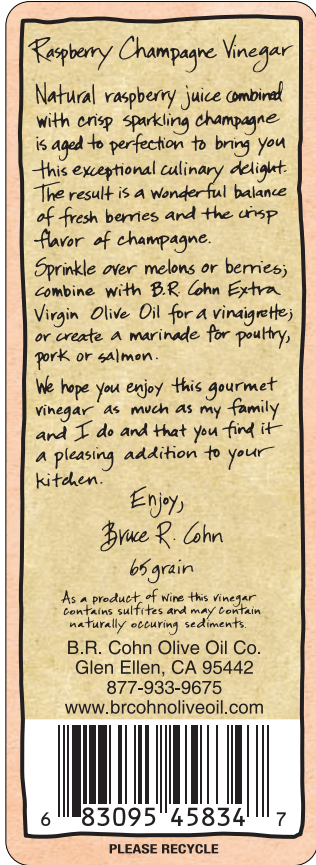 Raspberry Champagne Vinegar
Natural raspberry juice combined
with crisp sparkling champagne
is aged to perfection to bring you
this exceptional culinary delight.
The result is a wonderful balance
of fresh berries and the crisp
flavor of champagne.
Sprinkle over melons or berries;
combine with B.R. Cohn Extra
Virgin Olive Oil for a vinaigrette;
or create a marinade for poultry,
pork or salmon.
We hope you enjoy this gourmet
vinegar as much as my family
and I do and that you find it
a pleasing addition to your
kitchen.
Enjoy,
Bruce R. Cohn
65 grain
As a product of wine this vinegar
contains sulfites and may contain
naturally occuring sediments.
B.R. Cohn Olive Oil Co.
Glen Ellen, CA 95442
877-933-9675
www.brcohnoliveoil.com
6 83095 45834 7
PLEASE RECYCLE